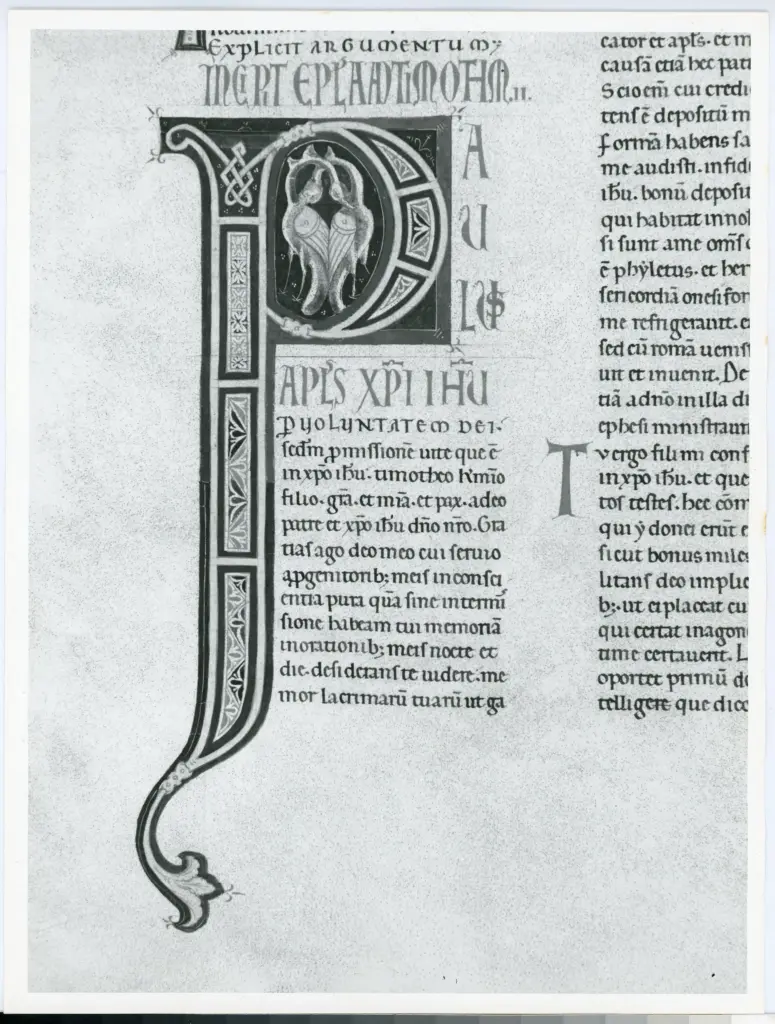 EXPLICIT ARGUMENTUM
INCIPIT EPLA AD TIMOTHM .II.
P
A
U
LUS
APLS XPI IHU
P UOLUNTATEM DEI.
sedm pmissione uite que ē
in xpo ihu. timotheo kmio
filio. gra. et mia. et pax. a deo
patre et xpo ihu dño nro. Gra
tias ago deo meo cui seruio
a pgenitorib; meis in consci
entia pura quā sine intermi
sione habeam tui memoriā
in orationib; meis nocte et
die. desiderans te uidere. me
mor lacrimarū tuarū ut ga
cator et apls. et m
causā etiā hec pati
Scio em cui credi
tens ē depositū m
Formā habens sa
me audisti. in fide
ihu. bonū deposit
qui habitat in nob
si sunt a me oms
ē phyletus. et her
sericordiā onesifor
me refrigerauit. e
sed cū romā uenis
uit et inuenit. De
tiā a dno in illa di
ephesi ministraui
Tv ergo fili mi conf
in xpo ihu. et que
tos testes. hec cōm
qui ydonei erūt e
sicut bonus miles
litans deo implic
b; ut ei placeat cu
qui certat in agon
time certauerit. L
oportet primū de
telligere que dico